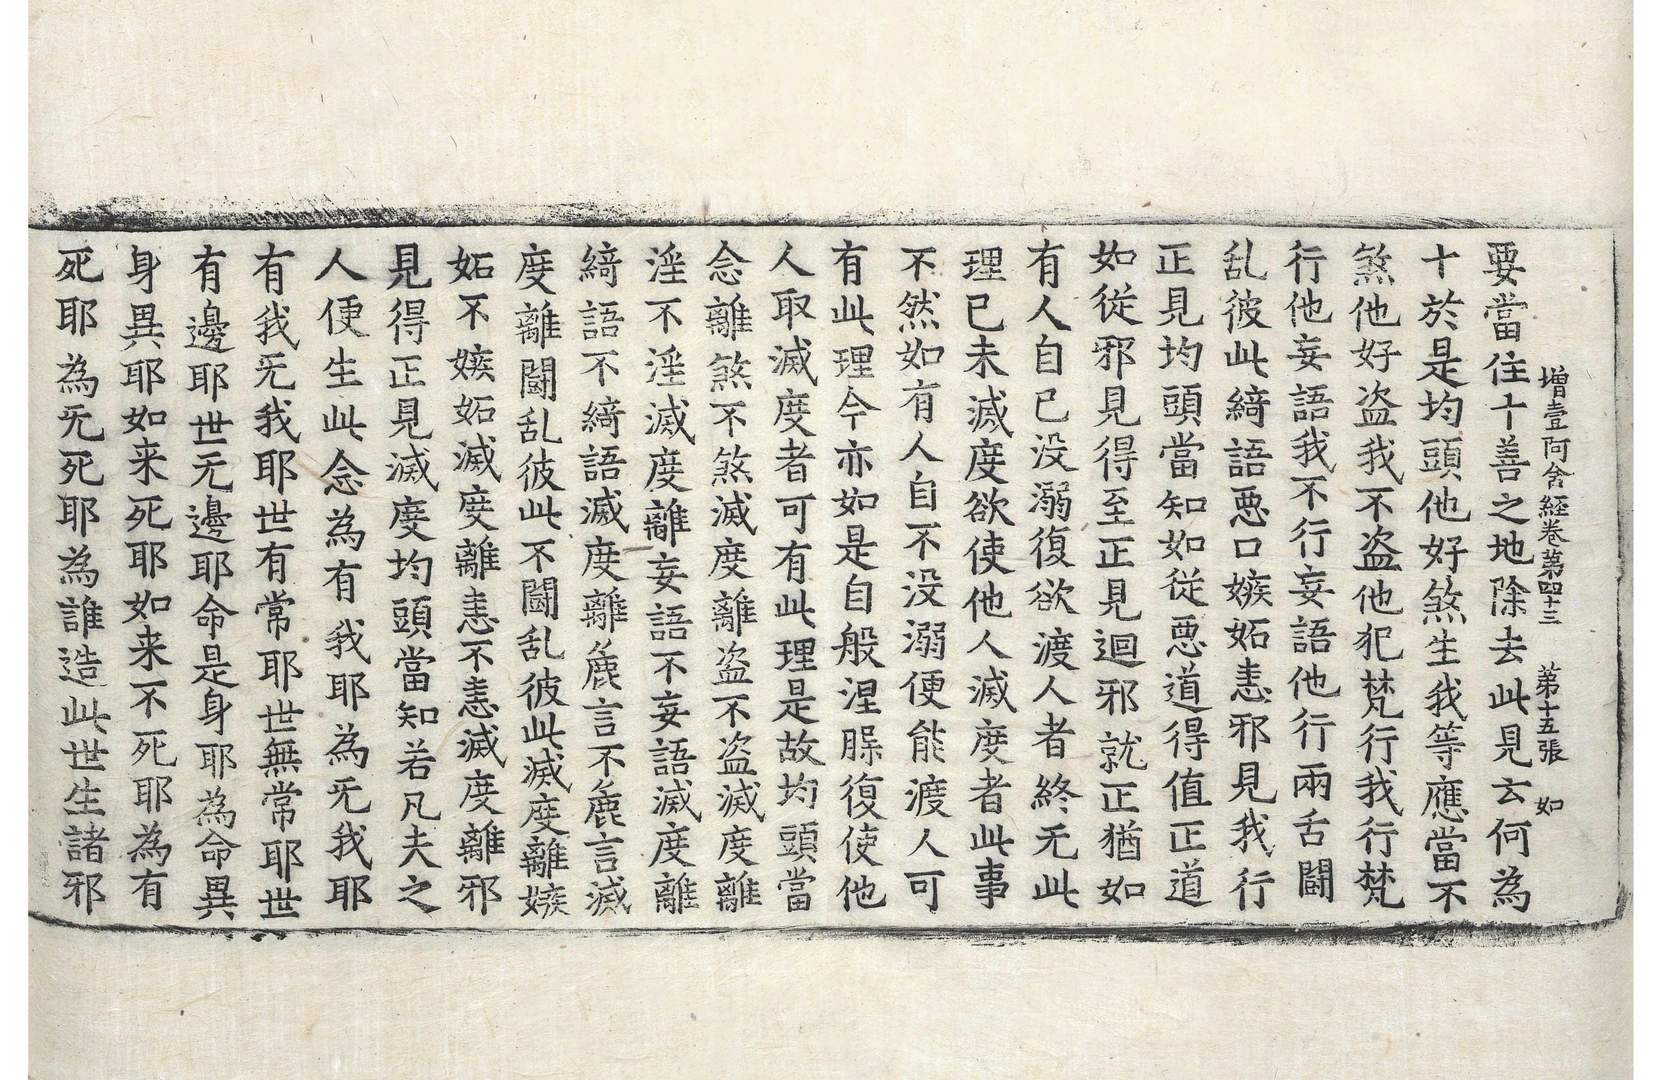 增壹阿含經卷第四十三　第十五張　如
要當住十善之地除去此見云何為
十於是均頭他好煞生我等應當不
煞他好盜我不盜他犯梵行我行梵
行他妄語我不行妄語他行兩舌鬪
乱彼此綺語惡口嫉妬恚邪見我行
正見均頭當知如從惡道得值正道
如從邪見得至正見迴邪就正猶如
有人自己没溺復欲渡人者終无此
理已未滅度欲使他人滅度者此事
不然如有人自不没溺便能渡人可
有此理今亦如是自般涅槃復使他
人取滅度者可有此理是故均頭當
念離煞不煞滅度離盜不盜滅度離
淫不淫滅度離妄語不妄語滅度離
綺語不綺語滅度離麁言不麁言滅
度離鬪乱彼此不鬪乱彼此滅度離嫉
妬不嫉妬滅度離恚不恚滅度離邪
見得正見滅度均頭當知若凡夫之
人便生此念為有我耶為无我耶
有我无我耶世有常耶世無常耶世
有邊耶世无邊耶命是身耶為命異
身異耶如来死耶如来不死耶為有
死耶為无死耶為誰造此世生諸邪